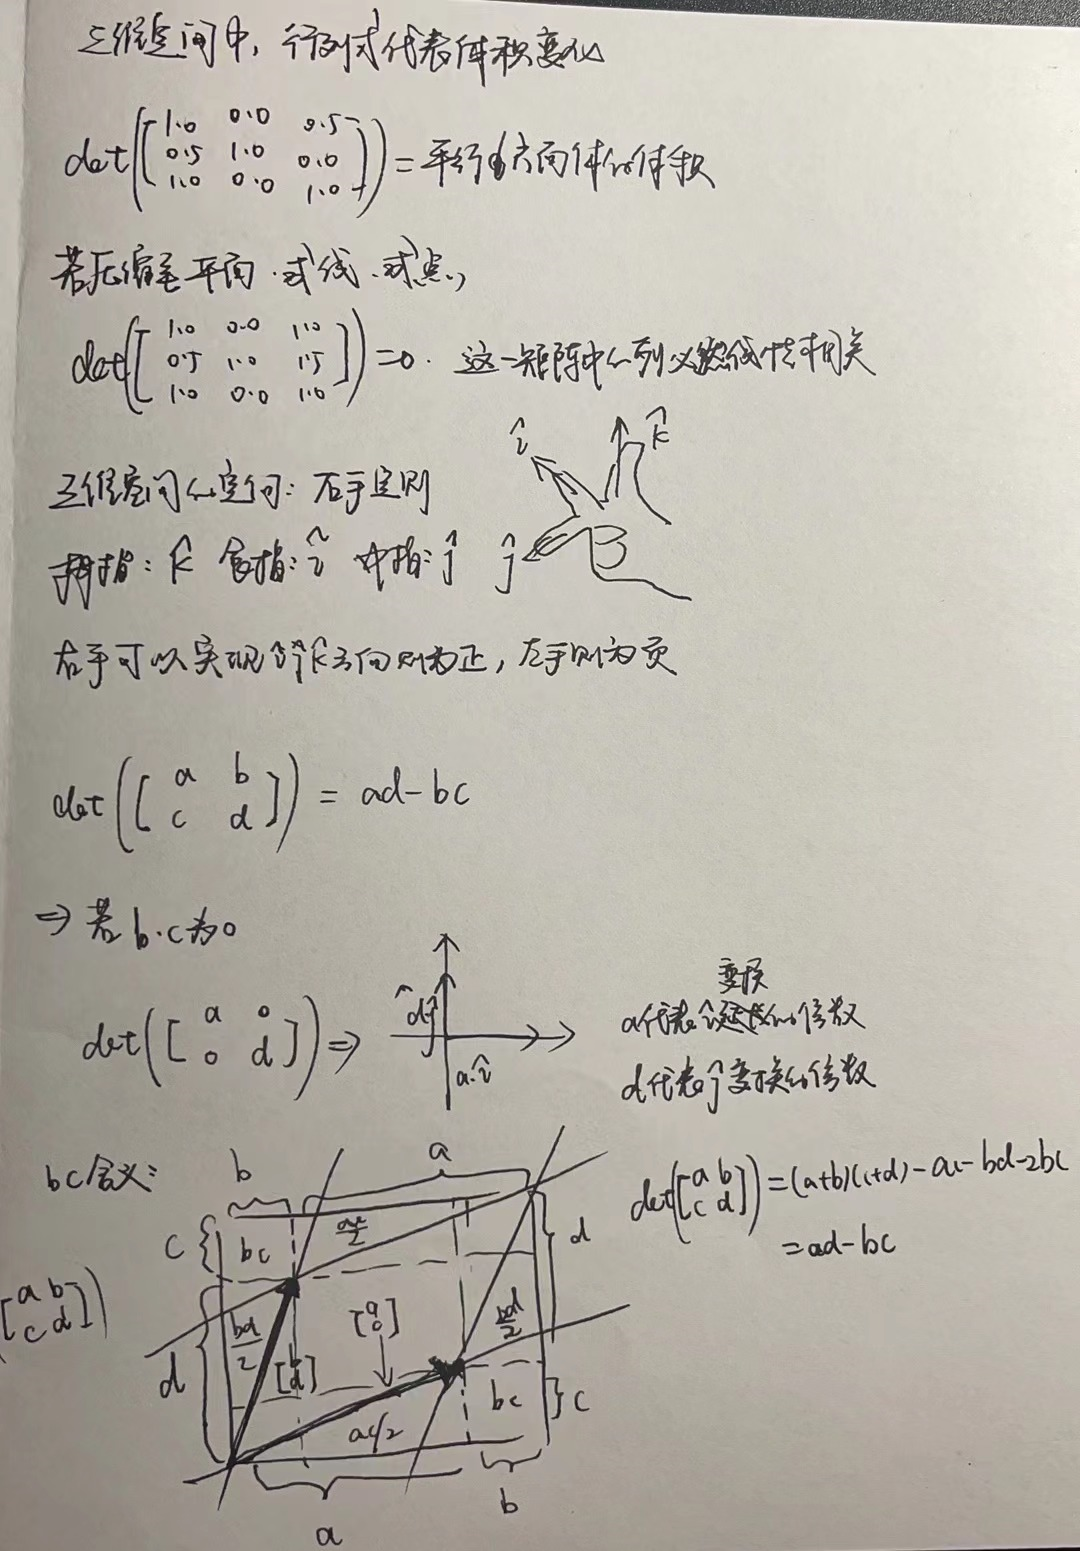 三维空间中,行列式代表体积变化
det([1.0 0.0 0.5
0.5 1.0 0.0
1.0 0.0 1.0])=平行六面体的体积
若压缩至平面、或线、或点,
det([1.0 0.0 1.0
0.5 1.0 1.5
1.0 0.0 1.0])=0. 这一矩阵中的列必然线性相关
三维空间的定向:右手定则
î k̂
拇指:k̂ 食指:î 中指:ĵ ĵ
右手可以实现îĵk̂方向则为正,左手则为负
det([a b
c d])=ad-bc
⇒若b.c为0
det([a 0
0 d])⇒
dĵ
a.î
变换
a代表î的倍数
d代表ĵ变换的倍数
bc含义:
b a
c bc ac/2 d
det([a b
c d])=(a+b)(c+d)-ac-bd-2bc
=ad-bc
[a b
c d])
d bd/2 bd/2
ac/2 bc c
a b